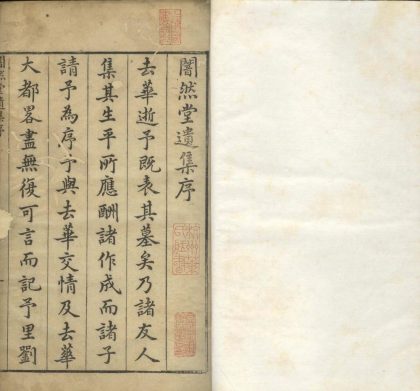 闇然堂遺集序
去華逝予既表其墓矣乃諸友人
集其生平所應酬諸作成而諸子
請予為序予與去華交情及去華
大都畧盡無復可言而記予里劉
闇然堂遺集序